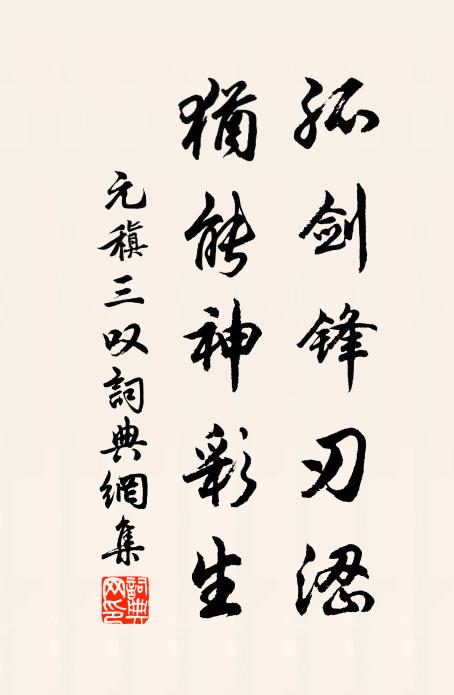 孤剑锋刃涩
猶能神彩生
元稹三叹詞典網集